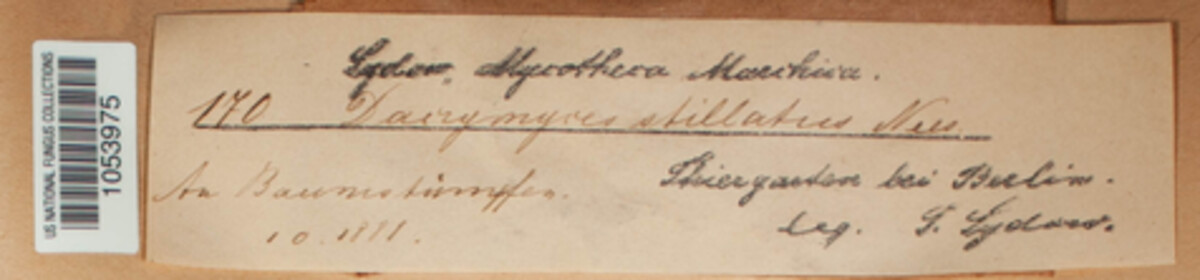 US NATIONAL FUNGUS COLLECTIONS
1053975
Sydow, Mycotheca Marchica.
170 Dacrymyces stillatus Nees
An Baumstümpfen.
10. 1881.
Thiergarten bei Berlin.
leg. P. Sydow.